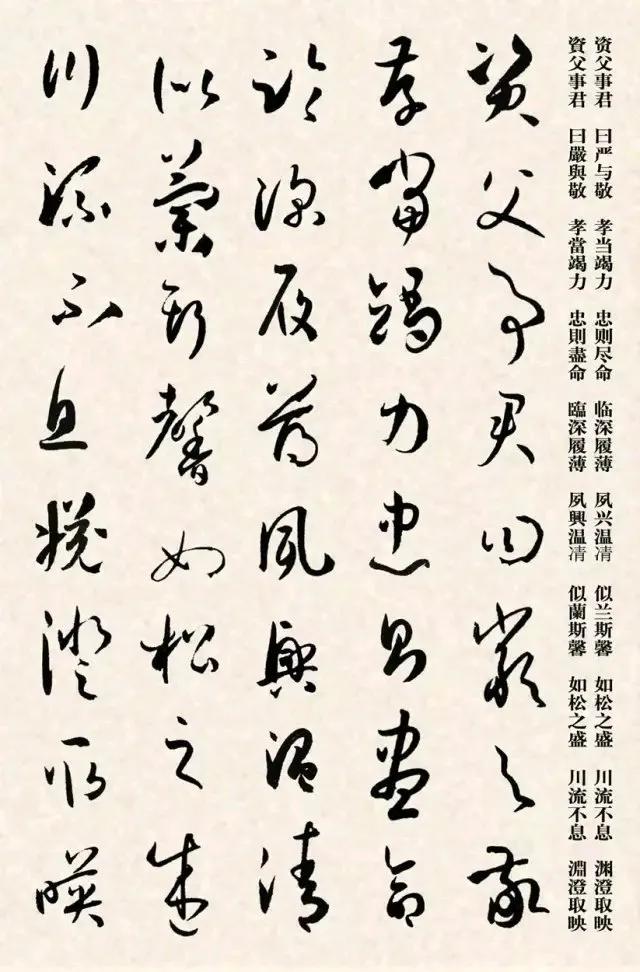 资父事君 曰严与敬 孝当竭力 忠则尽命 临深履薄 夙兴温凊 似兰斯馨 如松之盛 川流不息 渊澄取映
資父事君 曰嚴與敬 孝當竭力 忠則盡命 臨深履薄 夙興温凊 似蘭斯馨 如松之盛 川流不息 淵澄取映
資父事君曰嚴與敬
孝當竭力忠則盡命
臨深履薄夙興温清
似蘭斯馨如松之盛
川流不息淵澄取映